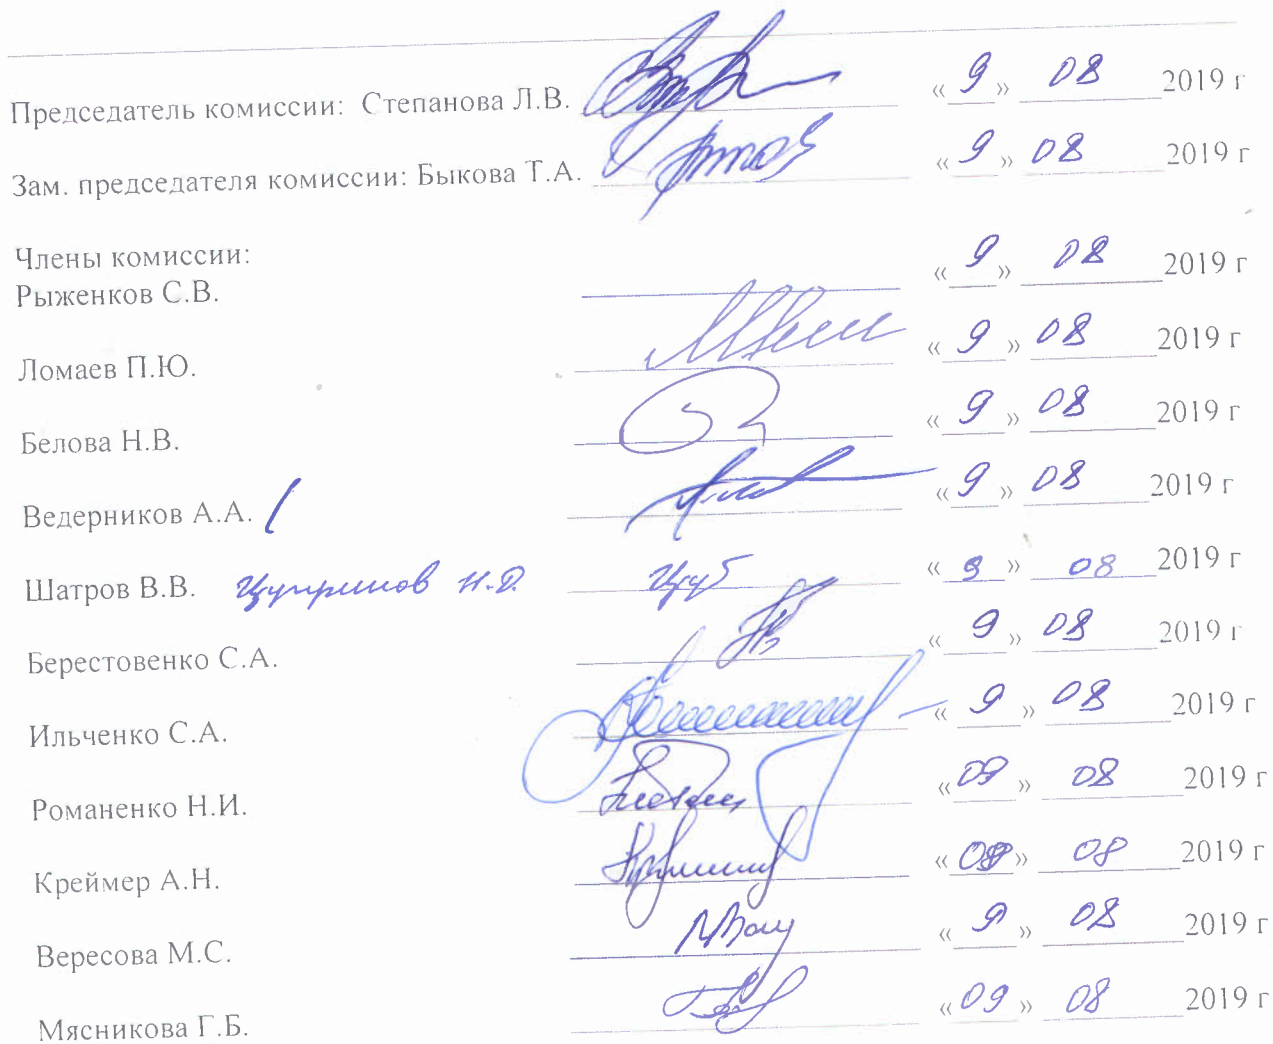 Председатель комиссии: Степанова Л.В. «9» 08 2019 г
Зам. председателя комиссии: Быкова Т.А. «9» 08 2019 г
Члены комиссии:
Рыженков С.В. «9» 08 2019 г
Ломаев П.Ю. «9» 08 2019 г
Белова Н.В. «9» 08 2019 г
Ведерников А.А. «9» 08 2019 г
Шатров В.В. Цупринов Н.Д. «9» 08 2019 г
Берестовенко С.А. «9» 08 2019 г
Ильченко С.А. «9» 08 2019 г
Романенко Н.И. «09» 08 2019 г
Креймер А.Н. «09» 08 2019 г
Вересова М.С. «9» 08 2019 г
Мясникова Г.Б. «09» 08 2019 г